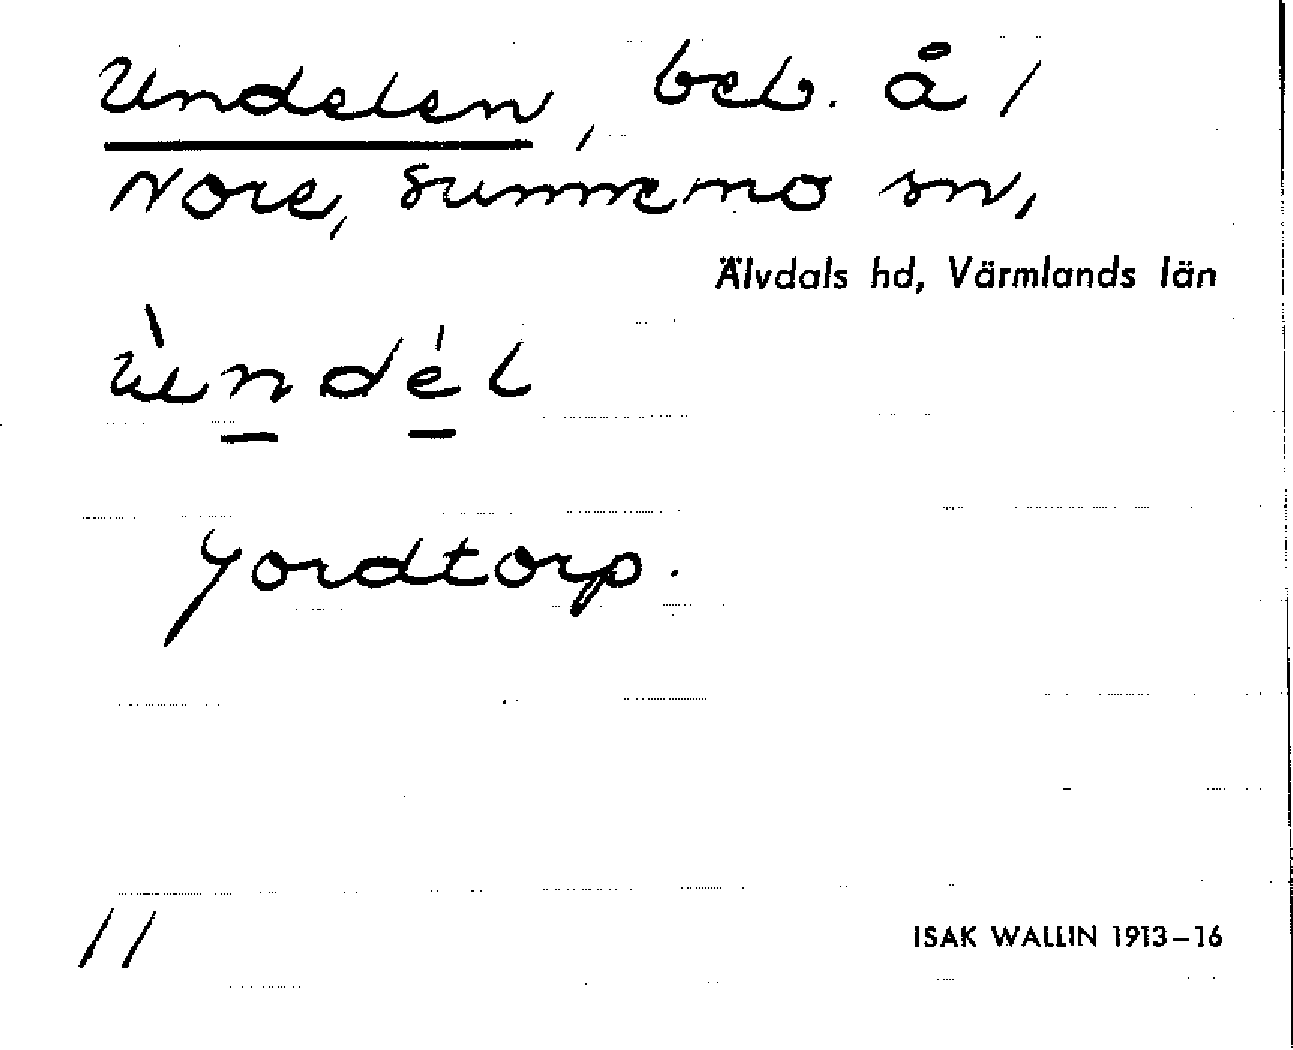 Undelen, beb. å 1
Nore, Sunnemo sn,
Älvdals hd, Värmlands län
ùndél
Jordtorp.
11
ISAK WALLIN 1913–16